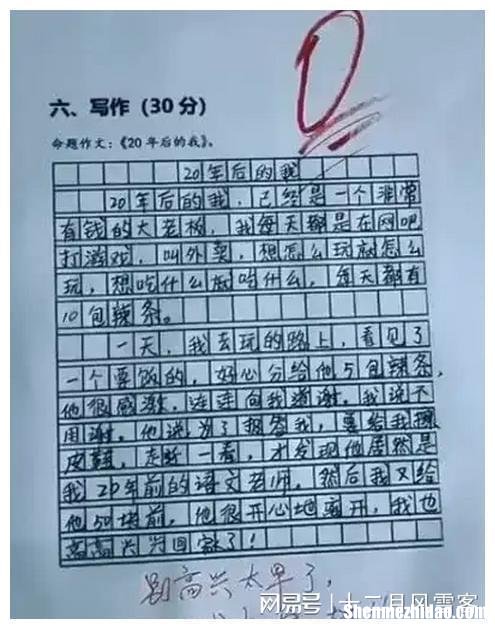 0
六、写作（30分）
命题作文：《20年后的我》。
20年后的我
20年后的我，已经是一个非常
有钱的大老板，我每天都是在网吧
打游戏，叫外卖，想怎么玩就怎么
玩，想吃什么就吃什么，每天都有
10包辣条。
一天，我去玩的路上，看见了
一个要饭的，好心分给他5包辣条，
他很感谢，连连向我道谢。我说不
用谢。他说为了报答我，要给我擦
皮鞋，走近一看，才发现他居然是
我20年前的语文老师。然后我又给
他50块前，他很开心地离开，我也
高高兴兴回家了！
别高兴太早了，
网易号 | 十二月风雪客
Shenmezhidao.com